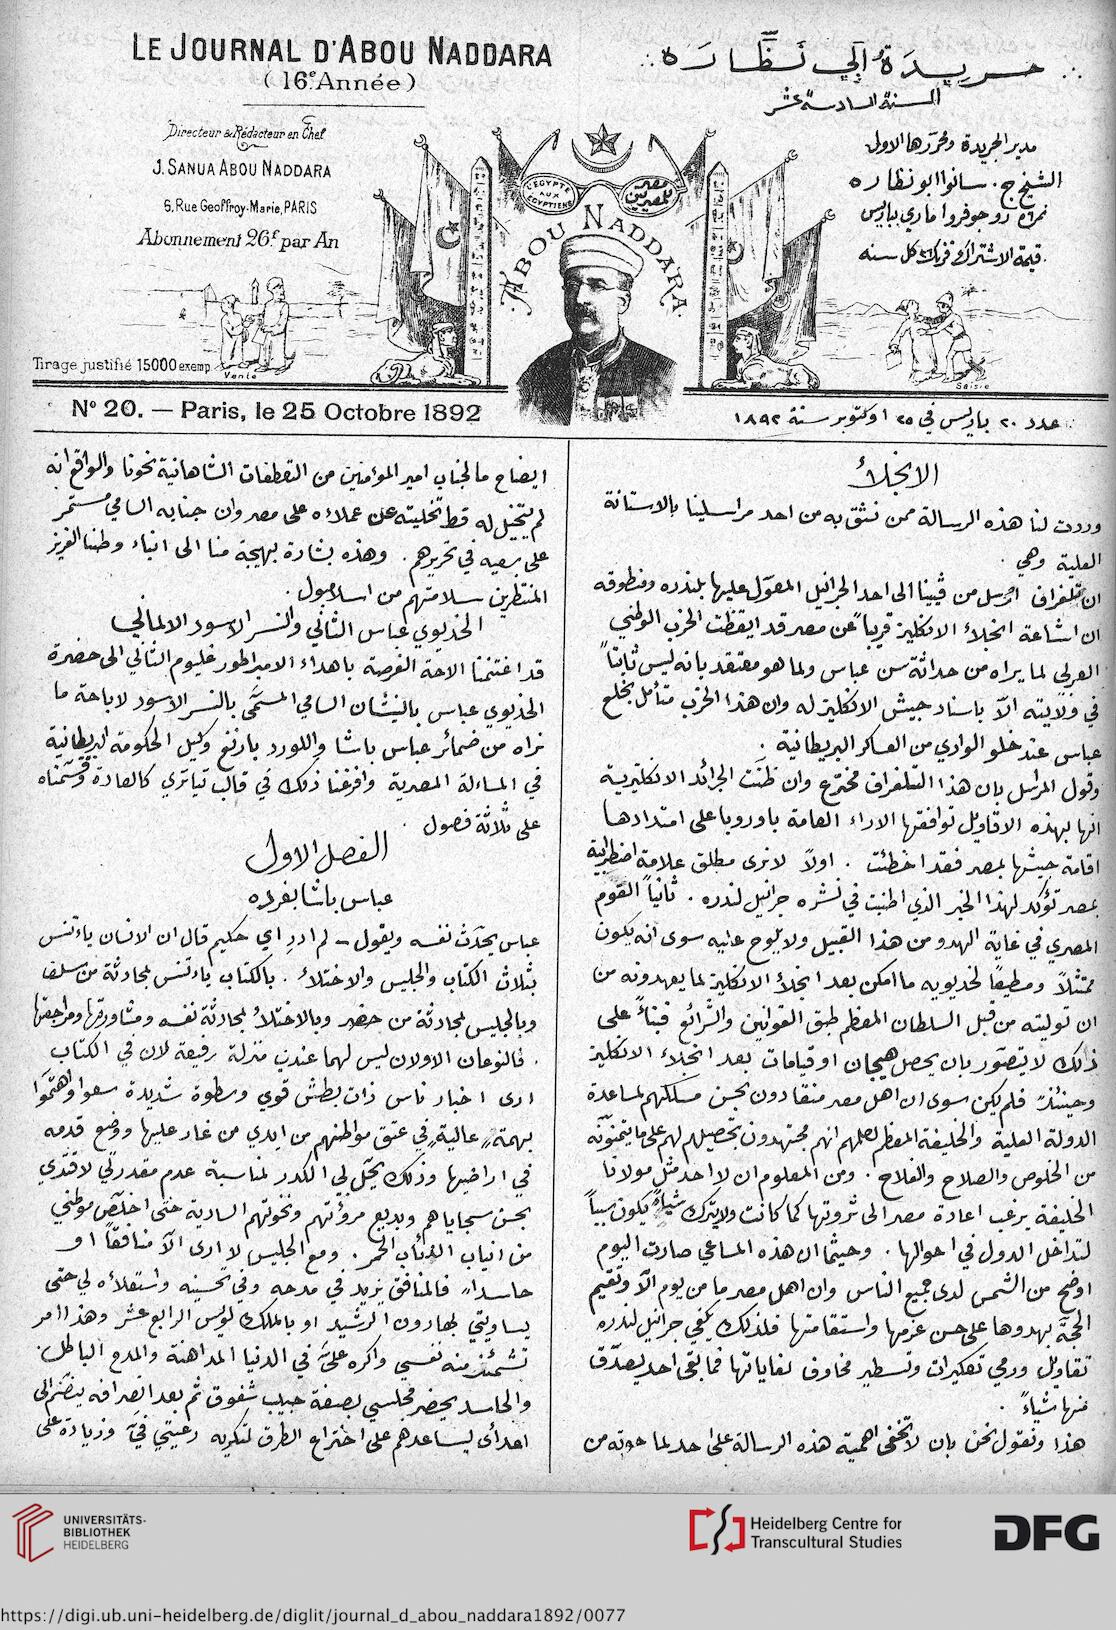 LE JOURNAL D'ABOU NADDARA
(16e Année)
Directeur & Rédacteur en Chef
J. SANUA ABOU NADDARA
6, Rue Geoffroy-Marie, PARIS
Abonnement 26f par An
Tirage justifié 15000 exemp.
Vente
L'EGYPTE AUX EGYPTIENS
مصر للمصريين
ABOU NADDARA
جريدة ابي نظارة
السنة السادسة عشر
مدير الجريدة ومحررها الاول
الشيخ ج. سانوا ابو نظاره
نمرة ٦ رو جوفروا ماري بباريس
قيمة الاشتراك فرنك ٢٦ كل سنه
Saisie
Nº 20. — Paris, le 25 Octobre 1892
عدد ٢٠ باريس في ٢٥ اوكتوبر سنة ١٨٩٢
الانجلاء
وردت لنا هذه الرسالة ممن نثق به من احد مراسلينا بالاستانة
العلية وهي .
ان تلغراف ارسل من فيينا الى احد الجرانيل المعول عليها بلندره ومنطوقه
ان اشاعة انجلاء الانكليز قريباً عن مصر قد ايقظت الحزب الوطني
العربي لما يراه من حداثة سن عباس ولما هو معتقد بانه ليس ثابتاً
في ولايته الاّ باسناد جيش الانكليز له وان هذا الحزب متأمل بخلع
عباس عند خلو الوادي من العساكر البريطانية .
وقول المرسل بان هذا التلغراف مخترع وان ظنت الجرائد الانكليزية
انها بهذه الاقاويل توافقها الاراء العامة باوروبا على امتدادها
اقامة جيشها بمصر فقد اخطئت . اولاً لا نرى مطلق علامة اضطرابية
بمصر تؤكد لهذا الخبر الذي اطنبت في نشره جرانيل لندره . ثانياً القوم
المصري في غاية الهدو من هذا القبيل ولا يلوح عليه سوى انه يكون
ممتثلاً ومطيعاً لخديويه ما امكن بعد انجلاء الانكليز لما يعهدونه من
ان توليته من قبل السلطان المعظم طبق القوانين والشرائع فبناءً على
ذلك لا يتصور بان يحصل هيجان او قيامات بعد انجلاء الانكليز
وحينئذٍ فلم يكن سوى ان اهل مصر منقادون بحسن مسلكهم لمساعدة
الدولة العلية والخليفة المعظم لعلمهم انهم مجتهدون بتحصيلهم لهم على ما يتمنونه
من الخلوص والصلاح والفلاح . ومن المعلوم ان لا احد مثل مولانا
الخليفة يرغب اعادة مصر الى ثروتها كما كانت ولا يترك شيئاً يكون سبباً
لتداخل الدول في احوالها . وحيثما ان هذه المساعي صارت اليوم
اوضح من الشمس لدى جميع الناس وان اهل مصر ما من يوم الاّ وتقيم
الحجة بهدوها على حسن عزمها واستقامتها فلذلك يكفي جرانيل لندره
تقاويل ورمي تعكيرات وتسطير مخاوف لغاياتها فما بقي احد يصدق
منها شيئاً .
هذا ونقول نحن بان لا تخفى اهمية هذه الرسالة على احد لما حوته من
ايضاح ما لجناب امير المؤمنين من التعطفات الشاهانية نحونا والواقع انه
لم يتخيل له قط تخليته عن عملاءه على مصر وان جنابه السامي مستمر
على سعيه في تحريرهم . وهذه بشارة بهيجة منا الى ابناء وطننا العزيز
المنتظرين سلامتهم من اسلامبول .
الخديوي عباس الثاني والنسر الاسود الالماني
قد اغتنمنا الاحة الفرصة باهداء الامبراطور غليوم الثاني الى حضرة
الخديوي عباس بالنيشان السامي المسمَّى بالنسر الاسود لاباحة ما
نراه من ضمائر عباس باشا واللورد بارنغ وكيل الحكومة البريطانية
في المسالة المصرية وافرغنا ذلك في قالب تياتري كالعادة وقسمناه
على ثلاثة فصول .
الفصل الاول
عباس باشا بفرده
عباس يحدّث نفسه ويقول – لم ادرِ اي حكيم قال ان الانسان ياءتنس
بثلاث الكتاب والجليس والاختلاء . بالكتاب ياءتنس لمجادثة من سلف
وبالجليس لمحادثة من حضر وبالاختلاء لمحادثة نفسه ومشاورتها ومراجعتها
. فالنوعان الاولان ليس لهما عندي منزلة رفيعة لان في الكتاب
ارى اخبار ناس ذات بطش قوي وسطوة شديدة سعوا واهتمّوا
بهمة عالية في عتق مواطنهم من ايدي من غار عليها ووضع قدمه
في اراضيها وذلك يحمّل لي الكدر لمناسبة عدم مقدرتي لاقتدي
بحسن سجاياهم وبديع مروّتهم ونخوتهم السادية حتى اخلّص موطني
من انياب الذئاب الحمر . ومع الجليس لا ارى الاّ منافقاً او
حاسداً فالمنافق يزيد في مدحه وفي تحسينه واستعلاءه لي حتى
يساويني لهارون الرشيد او بالملك لويس الرابع عشر وهذا امر
تشمئز منه نفسي واكره علىّ في الدنيا المداهنة والمدح الباطل.
والحاسد يحضر مجلسي بصفة حبيب شفوق ثم بعد انصرافه ينضم الى
اعدائي ليساعدهم على اختراع الطرق لتكريه رعيتي فيَّ وزيادة على
UNIVERSITÄTS-
BIBLIOTHEK
HEIDELBERG
Heidelberg Centre for
Transcultural Studies
DFG
https://digi.ub.uni-heidelberg.de/diglit/journal_d_abou_naddara1892/0077